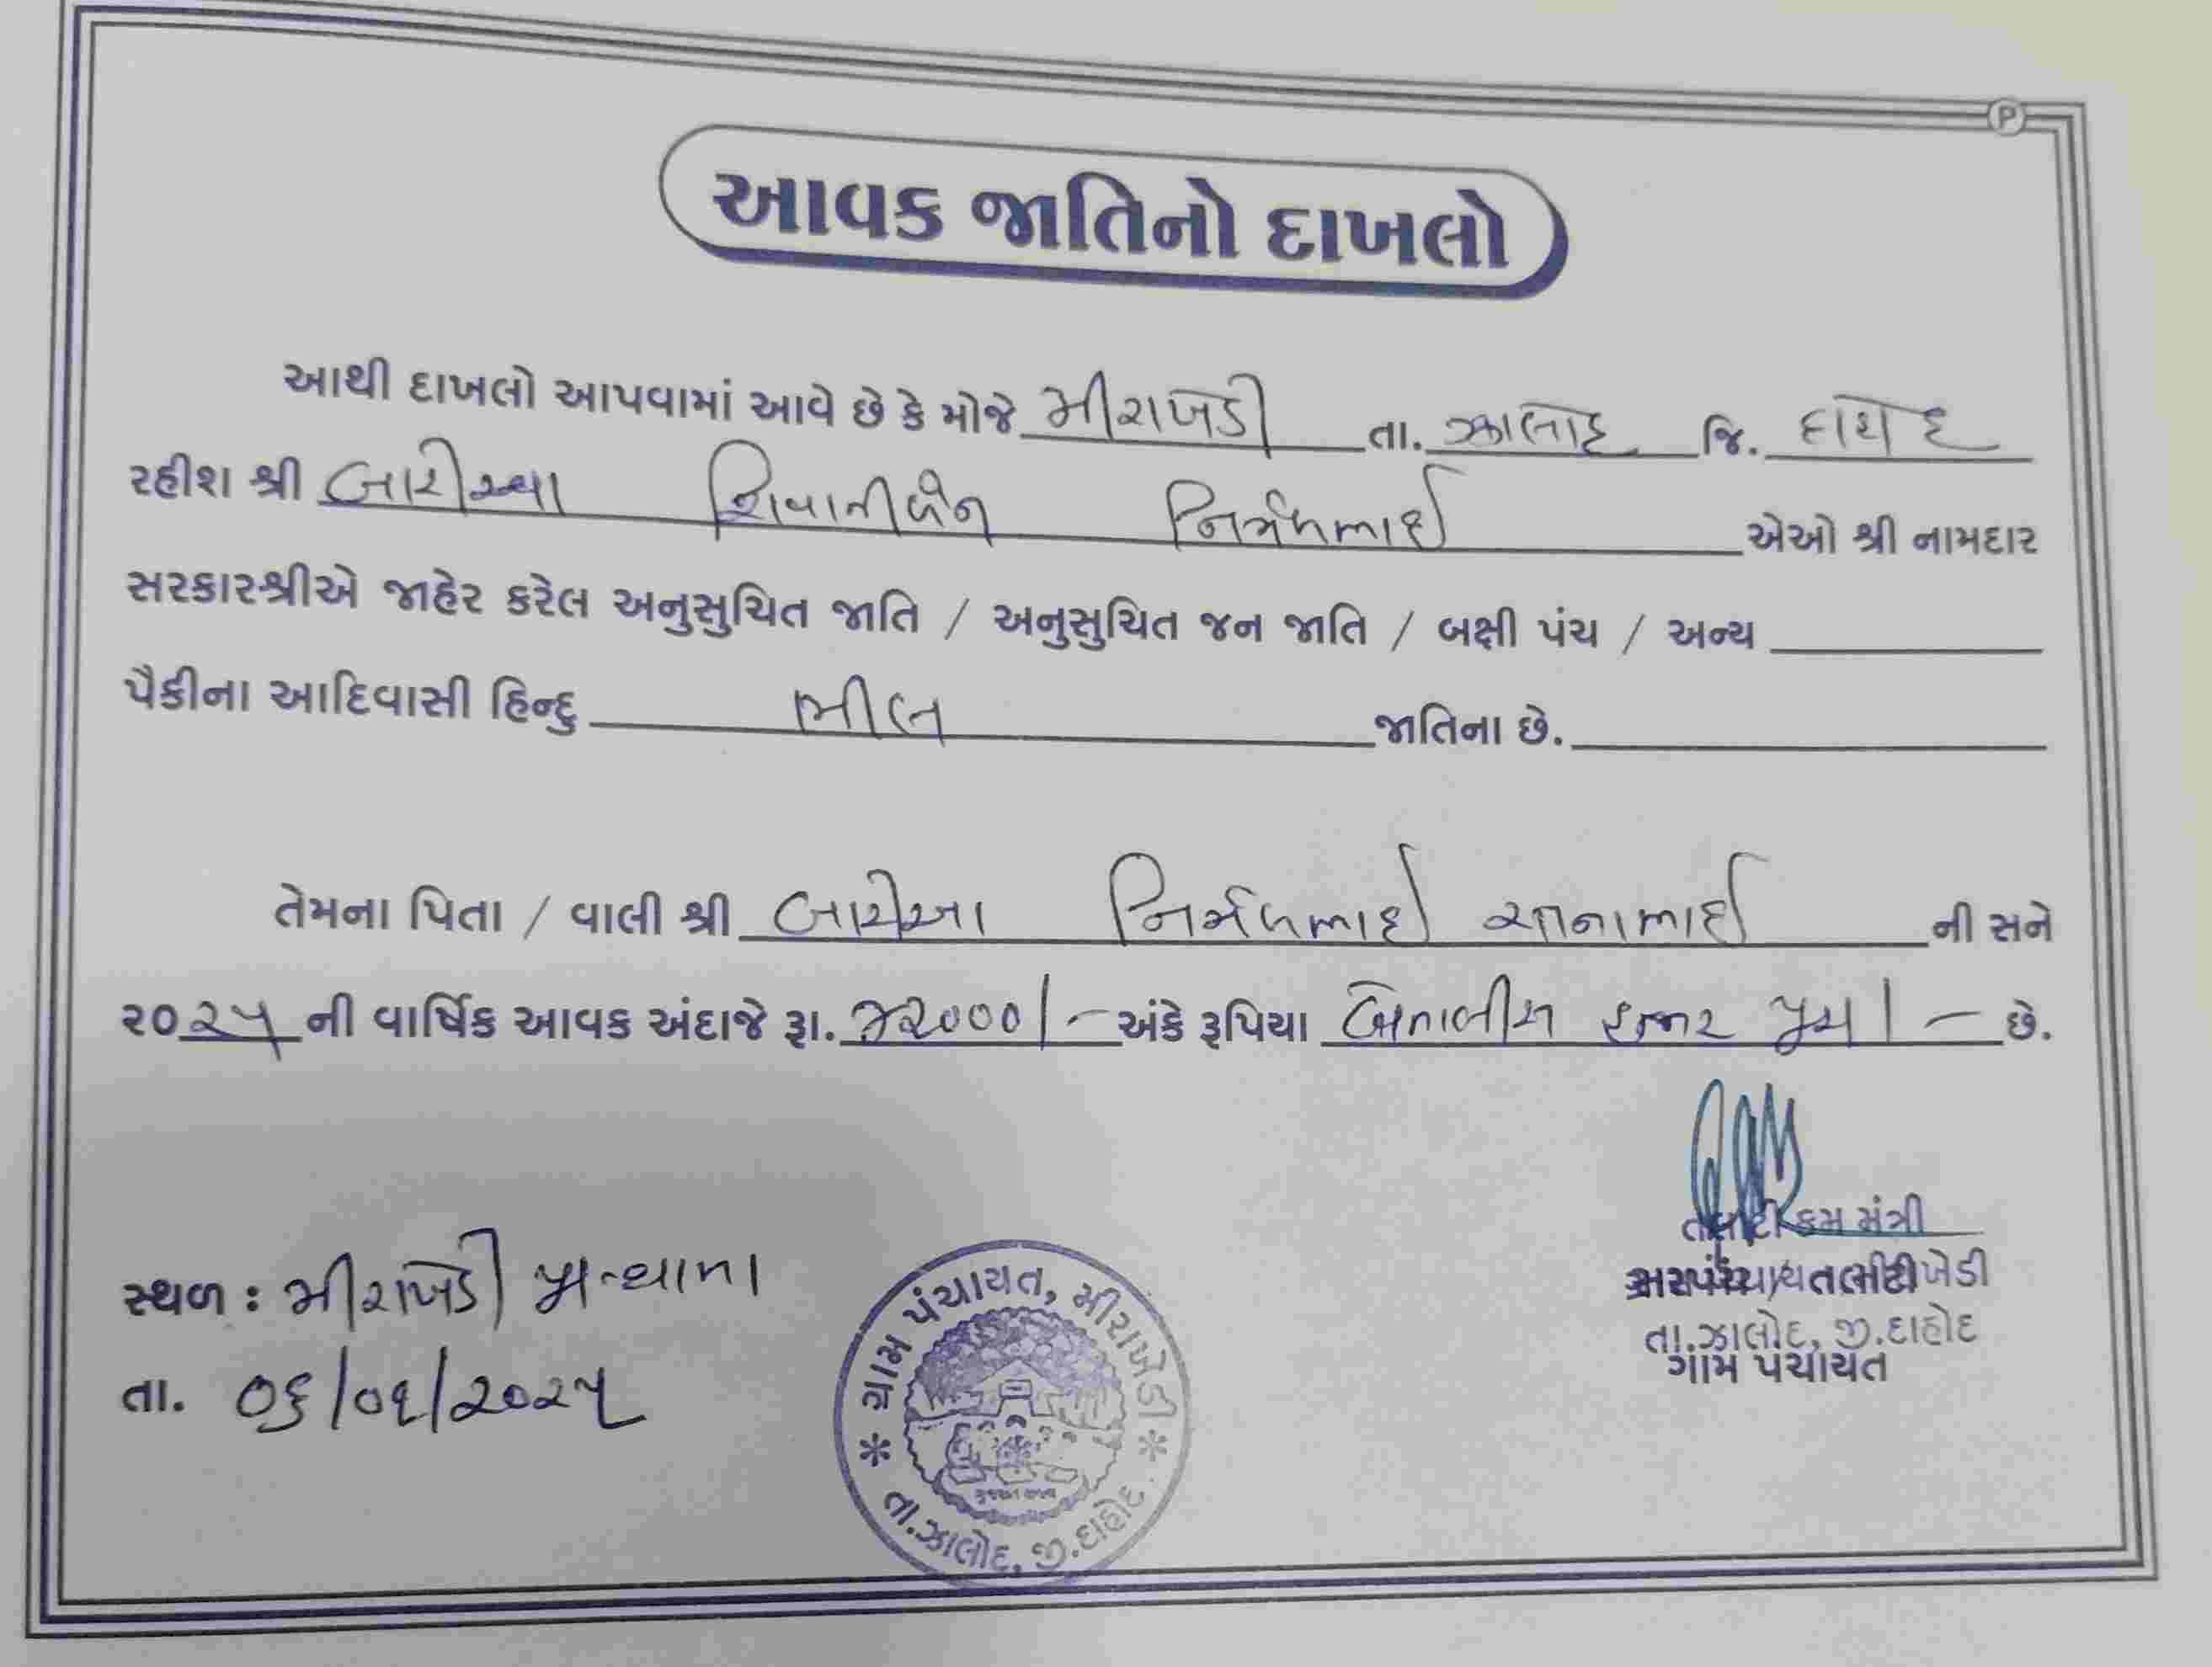 P
આવક જાતિનો દાખલો
આથી દાખલો આપવામાં આવે છે કે મોજે મીરાખેડી તા. ઝાલોદ જિ. દાહોદ
રહીશ શ્રી બારીઆ શિવાનીબેન નિર્મળભાઈ એઓ શ્રી નામદાર
સરકારશ્રીએ જાહેર કરેલ અનુસુચિત જાતિ / અનુસુચિત જન જાતિ / બક્ષી પંચ / અન્ય
પૈકીના આદિવાસી હિન્દુ ભીલ જાતિના છે.
તેમના પિતા / વાલી શ્રી બારીઆ નિર્મળભાઈ ની સને
૨૦૨૫ ની વાર્ષિક આવક અંદાજે રૂા. ૪૨૦૦૦/- અંકે રૂપિયા બેતાલીસ હજાર પુરા/- છે.
તલાટી કમ મંત્રી
સ્થળ : મીરાખેડી
તા.ઝાલોદ, જી.દાહોદ
ગામ પંચાયત
તા. ૦૬/૦૬/૨૦૨૫
ગ્રામ પંચાયત, મીરાખેડી
તા.ઝાલોદ, જી.દાહોદ